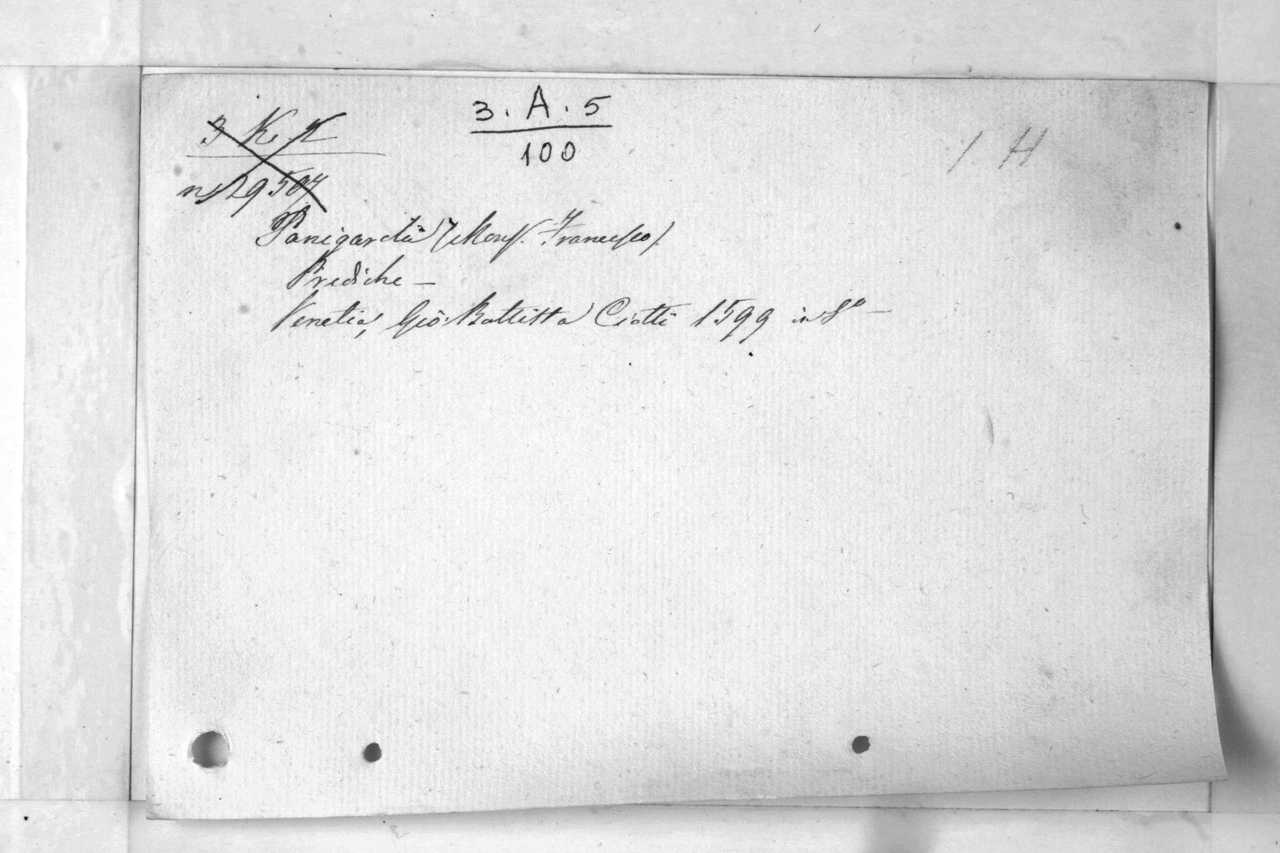 3 K K
3 . A . 5
100
1 H
Panigarola (Mons. Francesco)
Prediche –
Venetia, Giò: Battista Ciotti 1599 in 8º –